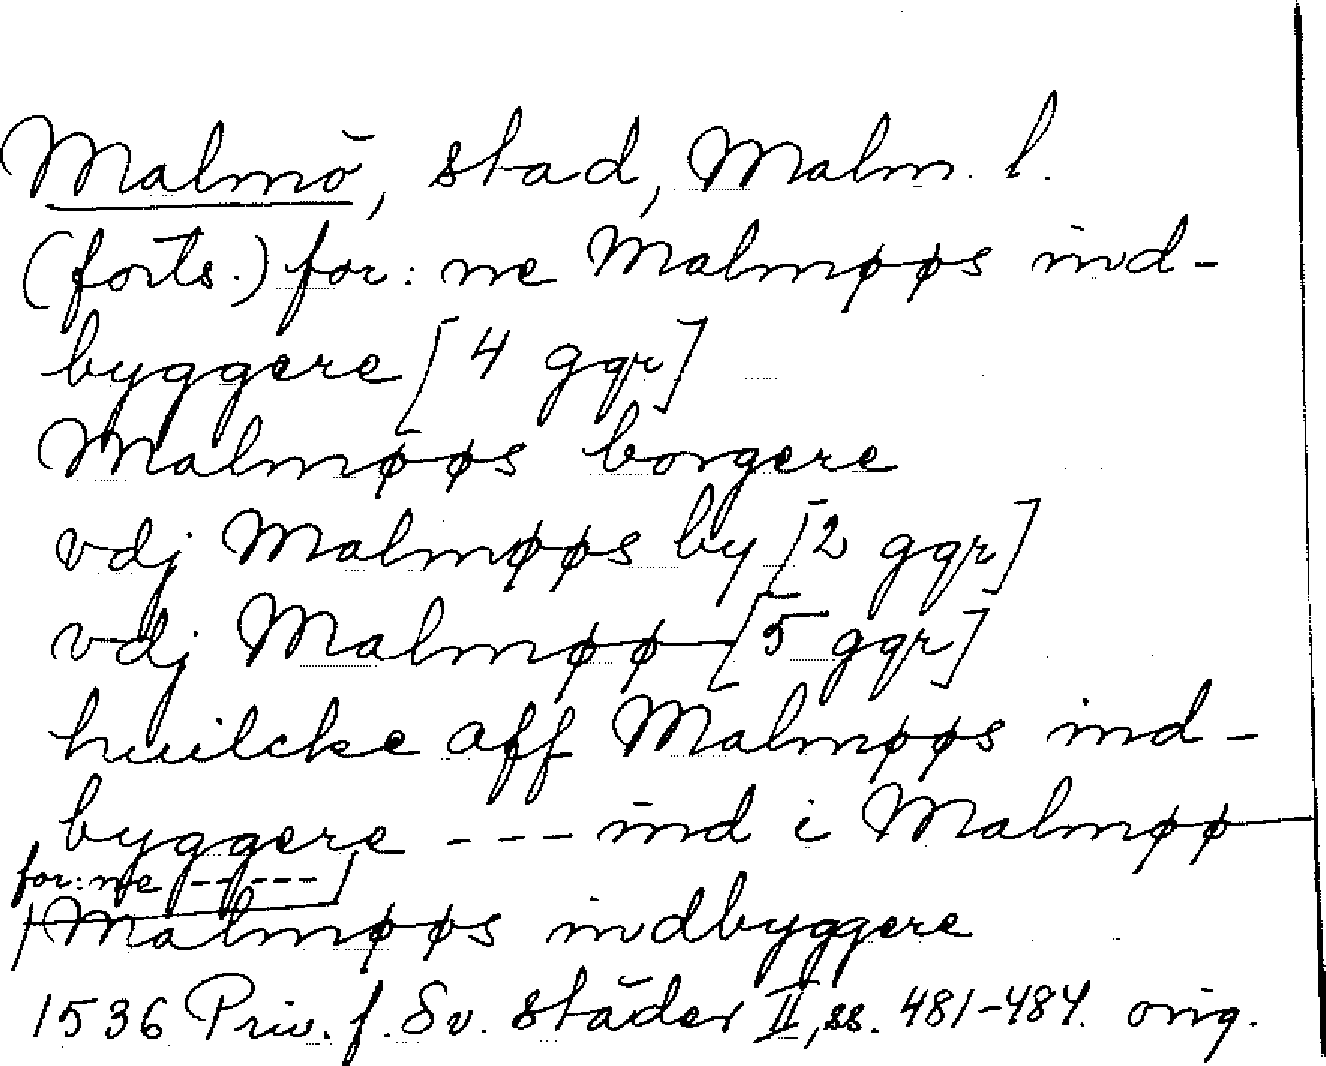 Malmö, stad, Malm. l.
(forts.) for: ne Malmøøs ind-
byggere [4 ggr]
Malmøøs borgere
vdj Malmøøs by [2 ggr]
vdj Malmøø [5 ggr]
huilcke aff Malmøøs ind-
byggere --- ind i Malmøø
for: ne -----
Malmøøs indbyggere
1536 Priv. f. Sv. städer II, ss. 481-484. orig.